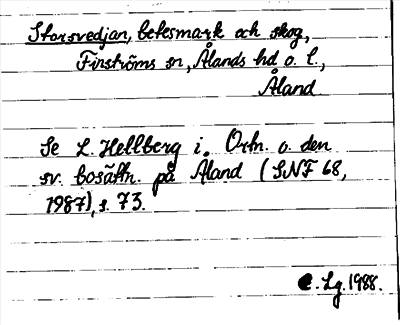 Storsvedjan, betesmark och skog,
Finströms sn, Ålands hd o. l.,
Åland
Se L. Hellberg i. Ortn. o. den
sv. bosättn. på Åland (SNF 68,
1987), s. 73.
C. Lg. 1988.